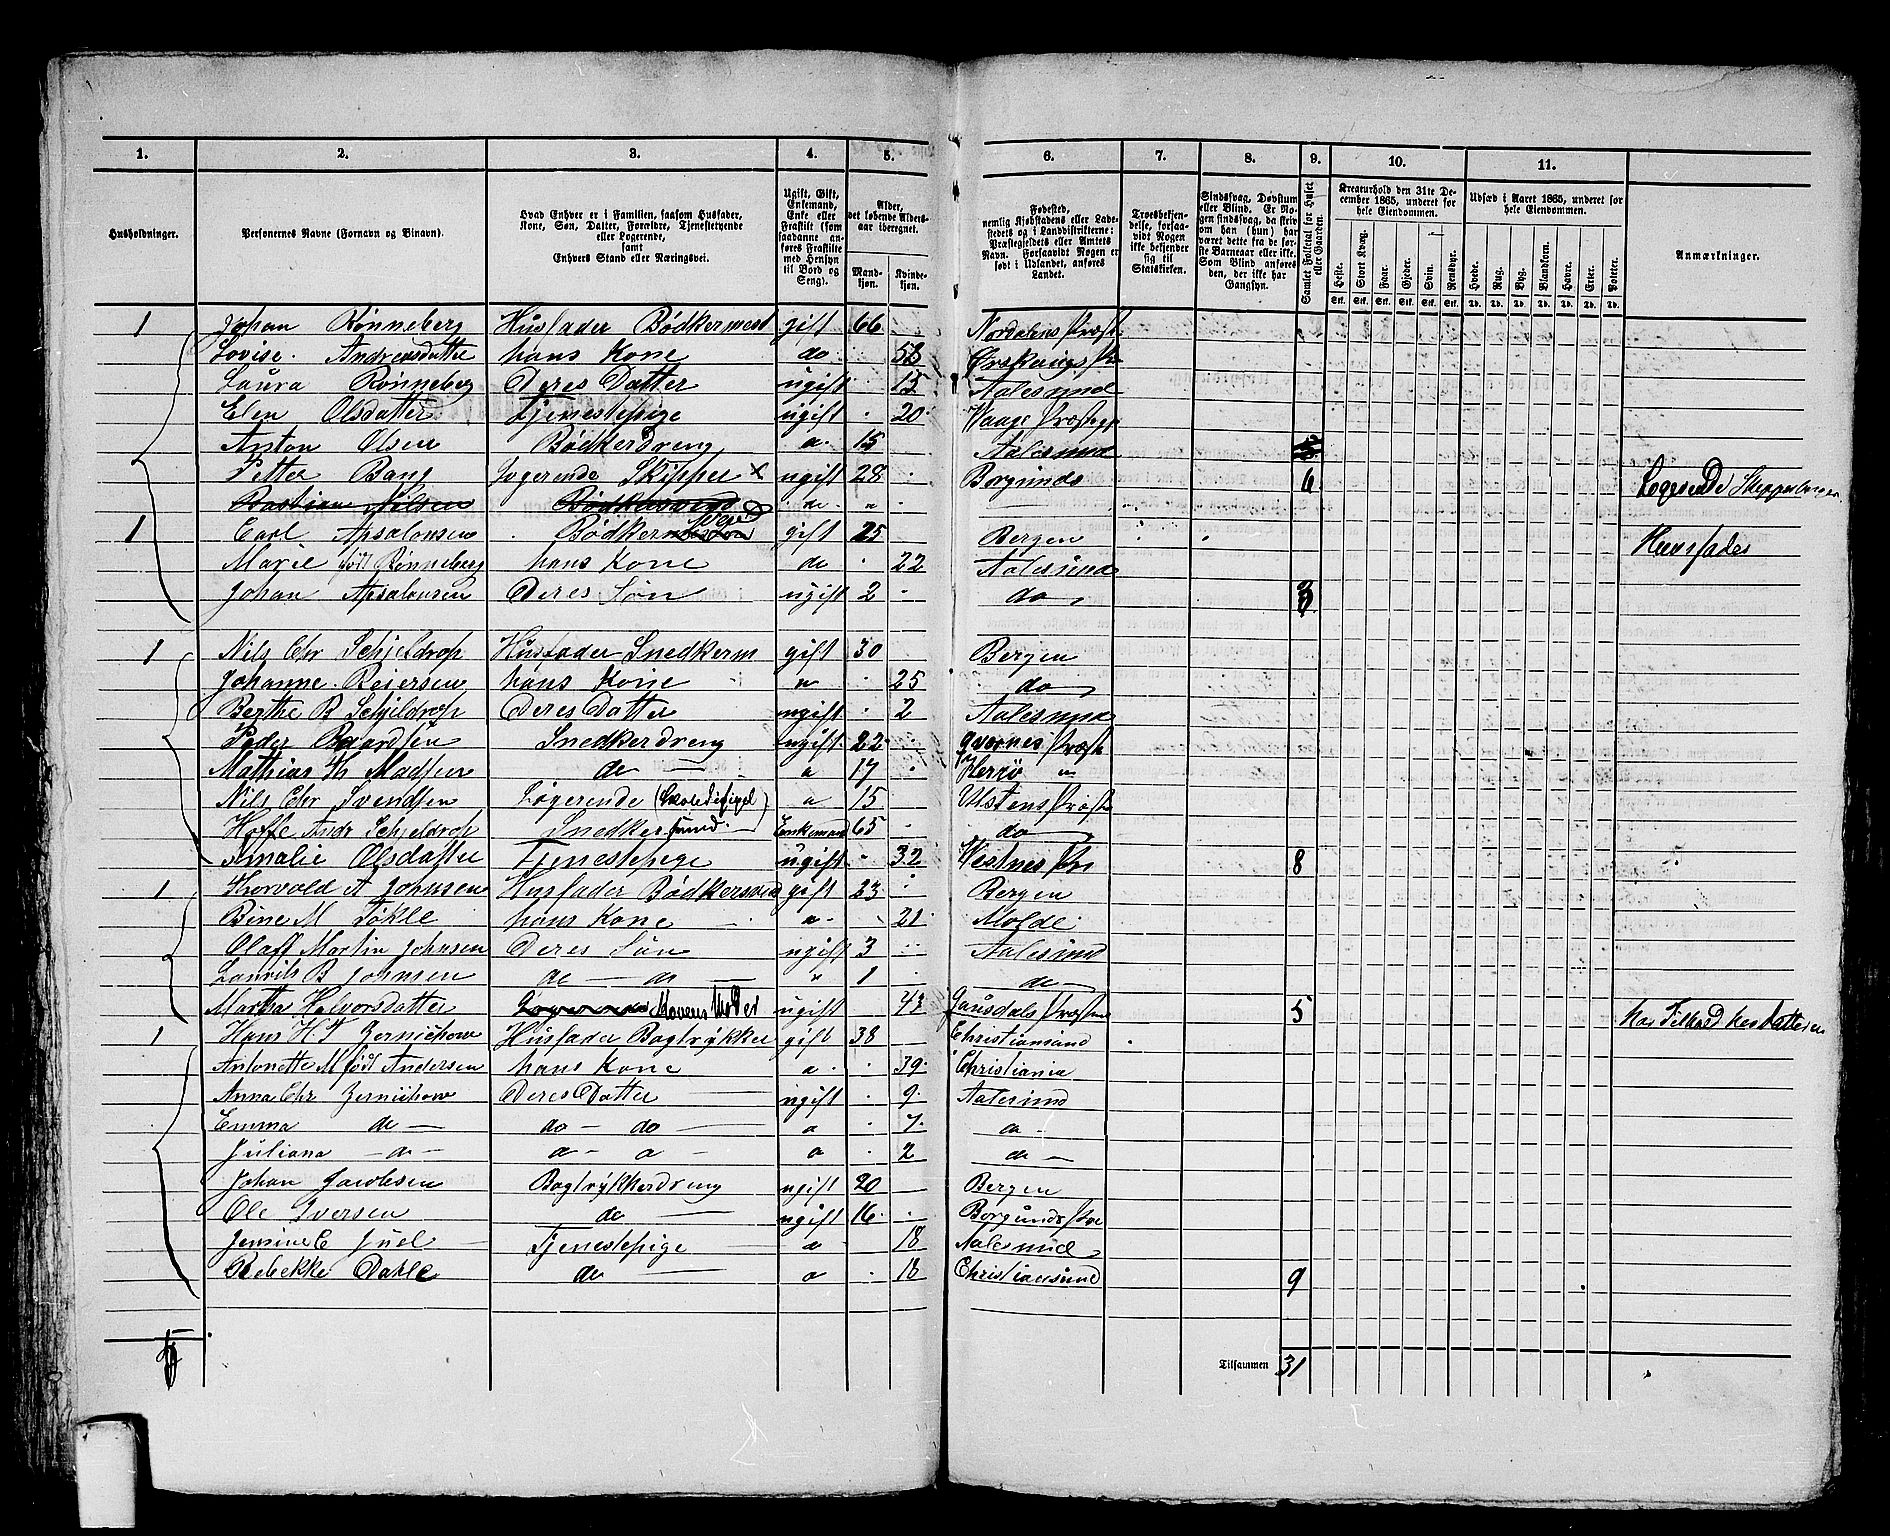 1. 2. 3. 4. 5. 6. 7. 8. 9. 10. 11.
Husholdninger.
Personernes Navne (Fornavn og Binavn).
Hvad Enhver er i Familien, saasom Husfader, Kone, Søn, Datter, Forældre, Tjenestetyende eller Logerende, samt Enhvers Stand eller Næringsvei.
Ugift, Gift, Enkemand, Enke eller Fraskilt (som saadanne anføres Fraskilte med Hensyn til Bord og Seng).
Alder, det løbende Aldersaar iberegnet.
Mandkjøn. Kvindekjøn.
Fødested, nemlig Kjøbstadens eller Ladestedets og i Landdistrikterne: Præstegjeldets eller Amtets Navn. Forsaavidt Nogen er født i Udlandet, anføres Landet.
Troesbekjendelse, forsaavidt Nogen ikke bekjender sig til Statskirken.
Sindssvag, Døvstum eller Blind. Er Nogen sindssvag, da skriv om han (hun) har været dette fra de første Barneaar eller ikke. Som Blind anføres den, der ikke har Gangsyn.
Samlet Folketal for Huset eller Gaarden.
Kreaturhold den 31te December 1865, underet for hele Eiendommen.
Heste. Stort Kvæg. Faar. Gjeder. Svin. Rensdyr.
Udsæd i Aaret 1865, underet for hele Eiendommen.
Hvede. Rug. Byg. Blandkorn. Havre. Erter. Poteter.
Anmærkninger.
1 Johan Rønneberg Husfader Bødkermest gift 66 Nordalens Præst
Lovise Andreasdatter hans Kone do 53 Ørskougs Pr
Laura Rønneberg Deres Datter ugift 15 Aalesund
Elen Olsdatter Tjenestepige ugift 20 Waage Præstgj
Anton Olsen Bødkerdreng a 15 Aalesund
Petter Bang Logerende Skipper x ugift 28 Borgunds 6 Logerende
Bastian Nilsen Bødkersvend
1 Carl Apsalonsen Bødker Svend gift 25 Bergen Huusfader
Marie født Rønneberg hans Kone do 22 Aalesund
Johan Apsalonsen Deres Søn ugift 2 do 3
1 Nils Chr Schjeldrop Husfader Snedkerm gift 30 Bergen
Johanne Reiersen hans Kone " 25 do
Berthe B Schjeldrop Deres Datter ugift 2 Aalesund
Peder Baardsen Snedkerdreng ugift 22 Præst
Mathias H Madsen do 17 Herrø "
Nils Chr Svendsen Logerende a 15 Ulstens Præst
Andr Schjeldrop Snedkersvend Enkemand 65 do
Amalie Olsdatter Tjenestepige ugift 32 Vestnes Pr 8
1 Thorvald A Johnsen Husfader Bødkersvend gift 23 Bergen
Bine M Tøkle hans Kone a 21 Molde
Olaff Martin Johnsen Deres Søn ugift 3 Aalesund
Laurits B Johnsen do do " 1 do
Martha Halvorsdatter Konens Moder ugift 43 Gausdals Præst 5
1 Hans H T Zernichow Husfader Bogtrykker gift 38 Christiansand
Antonette M født Andersen hans Kone a 39 Christiania
Anna Chr Zernichow Deres Datter ugift 9 Aalesund
Emma do do do a 7 do
Juliana do a a a 2 do
Johan Jacobsen Bogtrykkerdreng ugift 20 Bergen
Ole Iversen do ugift 16 Borgunds Pre
Jensine C Juel Tjenestepige a 18 Aalesund
Rebekke Dahle do a 18 Christiansund 9
Tilsammen 31